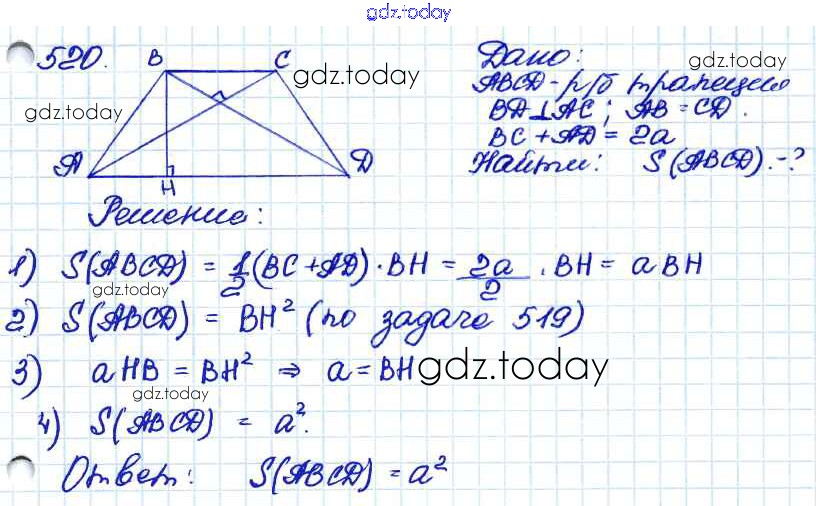 gdz.today
520.
B C
gdz.today
gdz.today
A H D
Дано:
ABCD - р/б трапеция
BD⊥AC; AB = CD.
BC + AD = 2a
Найти: S(ABCD).-?
Решение:
1) S(ABCD) = 1/2 (BC + AD) · BH = 2a/2 · BH = a BH
gdz.today
2) S(ABCD) = BH² (по задаче 519)
3) a HB = BH² ⇒ a = BH
gdz.today
gdz.today
4) S(ABCD) = a².
Ответ: S(ABCD) = a²